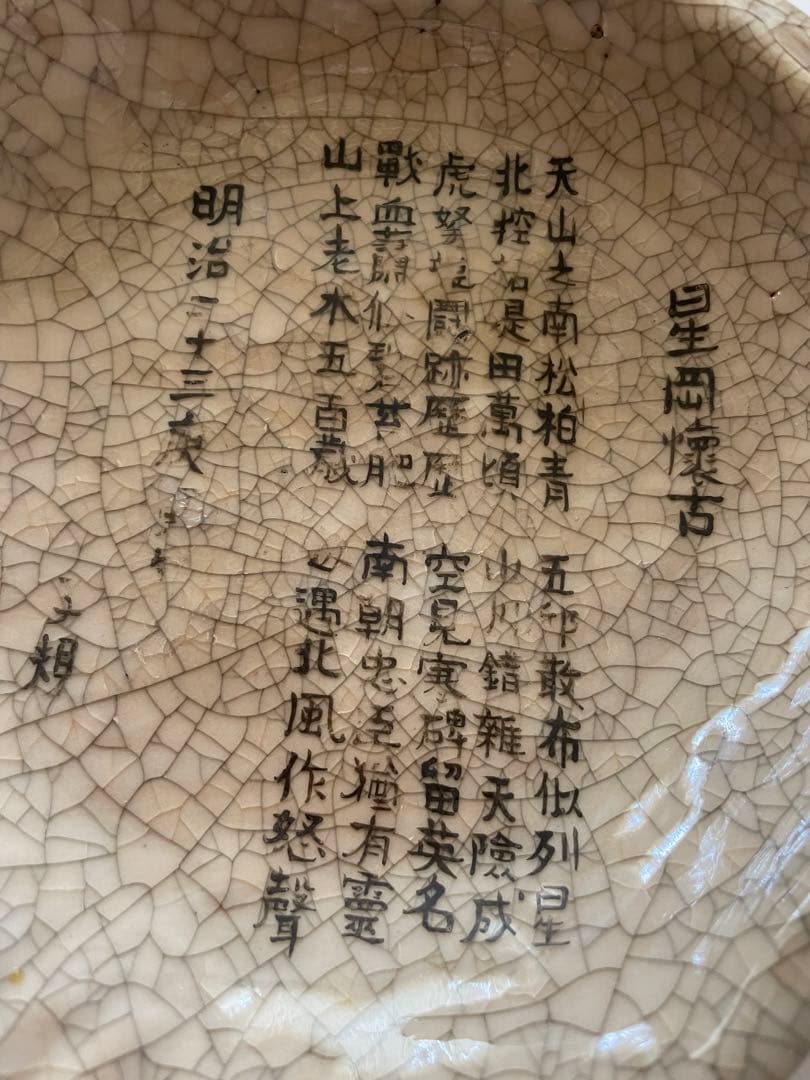 星岡懷古
天山之南松柏青 五邱散布似列星
北控是田萬頃 山川錯雜天險成
虎鬪跡歷歷 空見寒碑留英名
戰血 南朝忠臣猶有靈
山上老木五百歲 遇北風作怒聲
明治二十三歲
子規